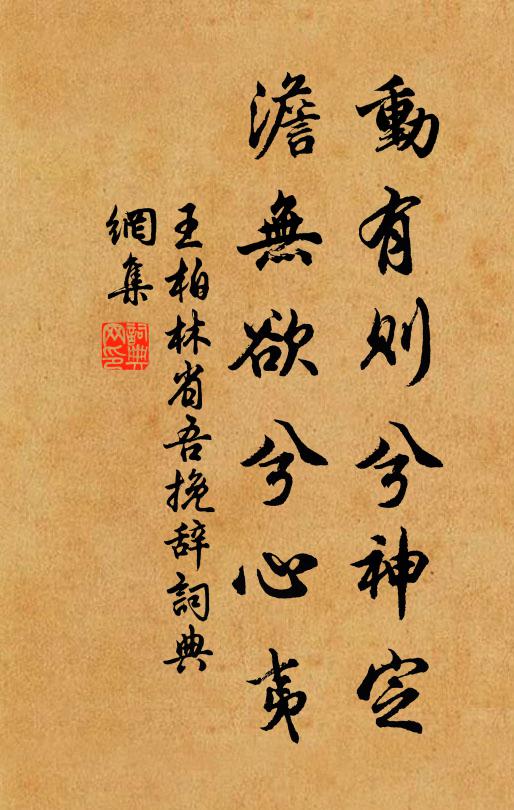 動有則兮神定
澹無欲兮心夷
王柏林省吾挽辞詞典
網集
詞典
网印